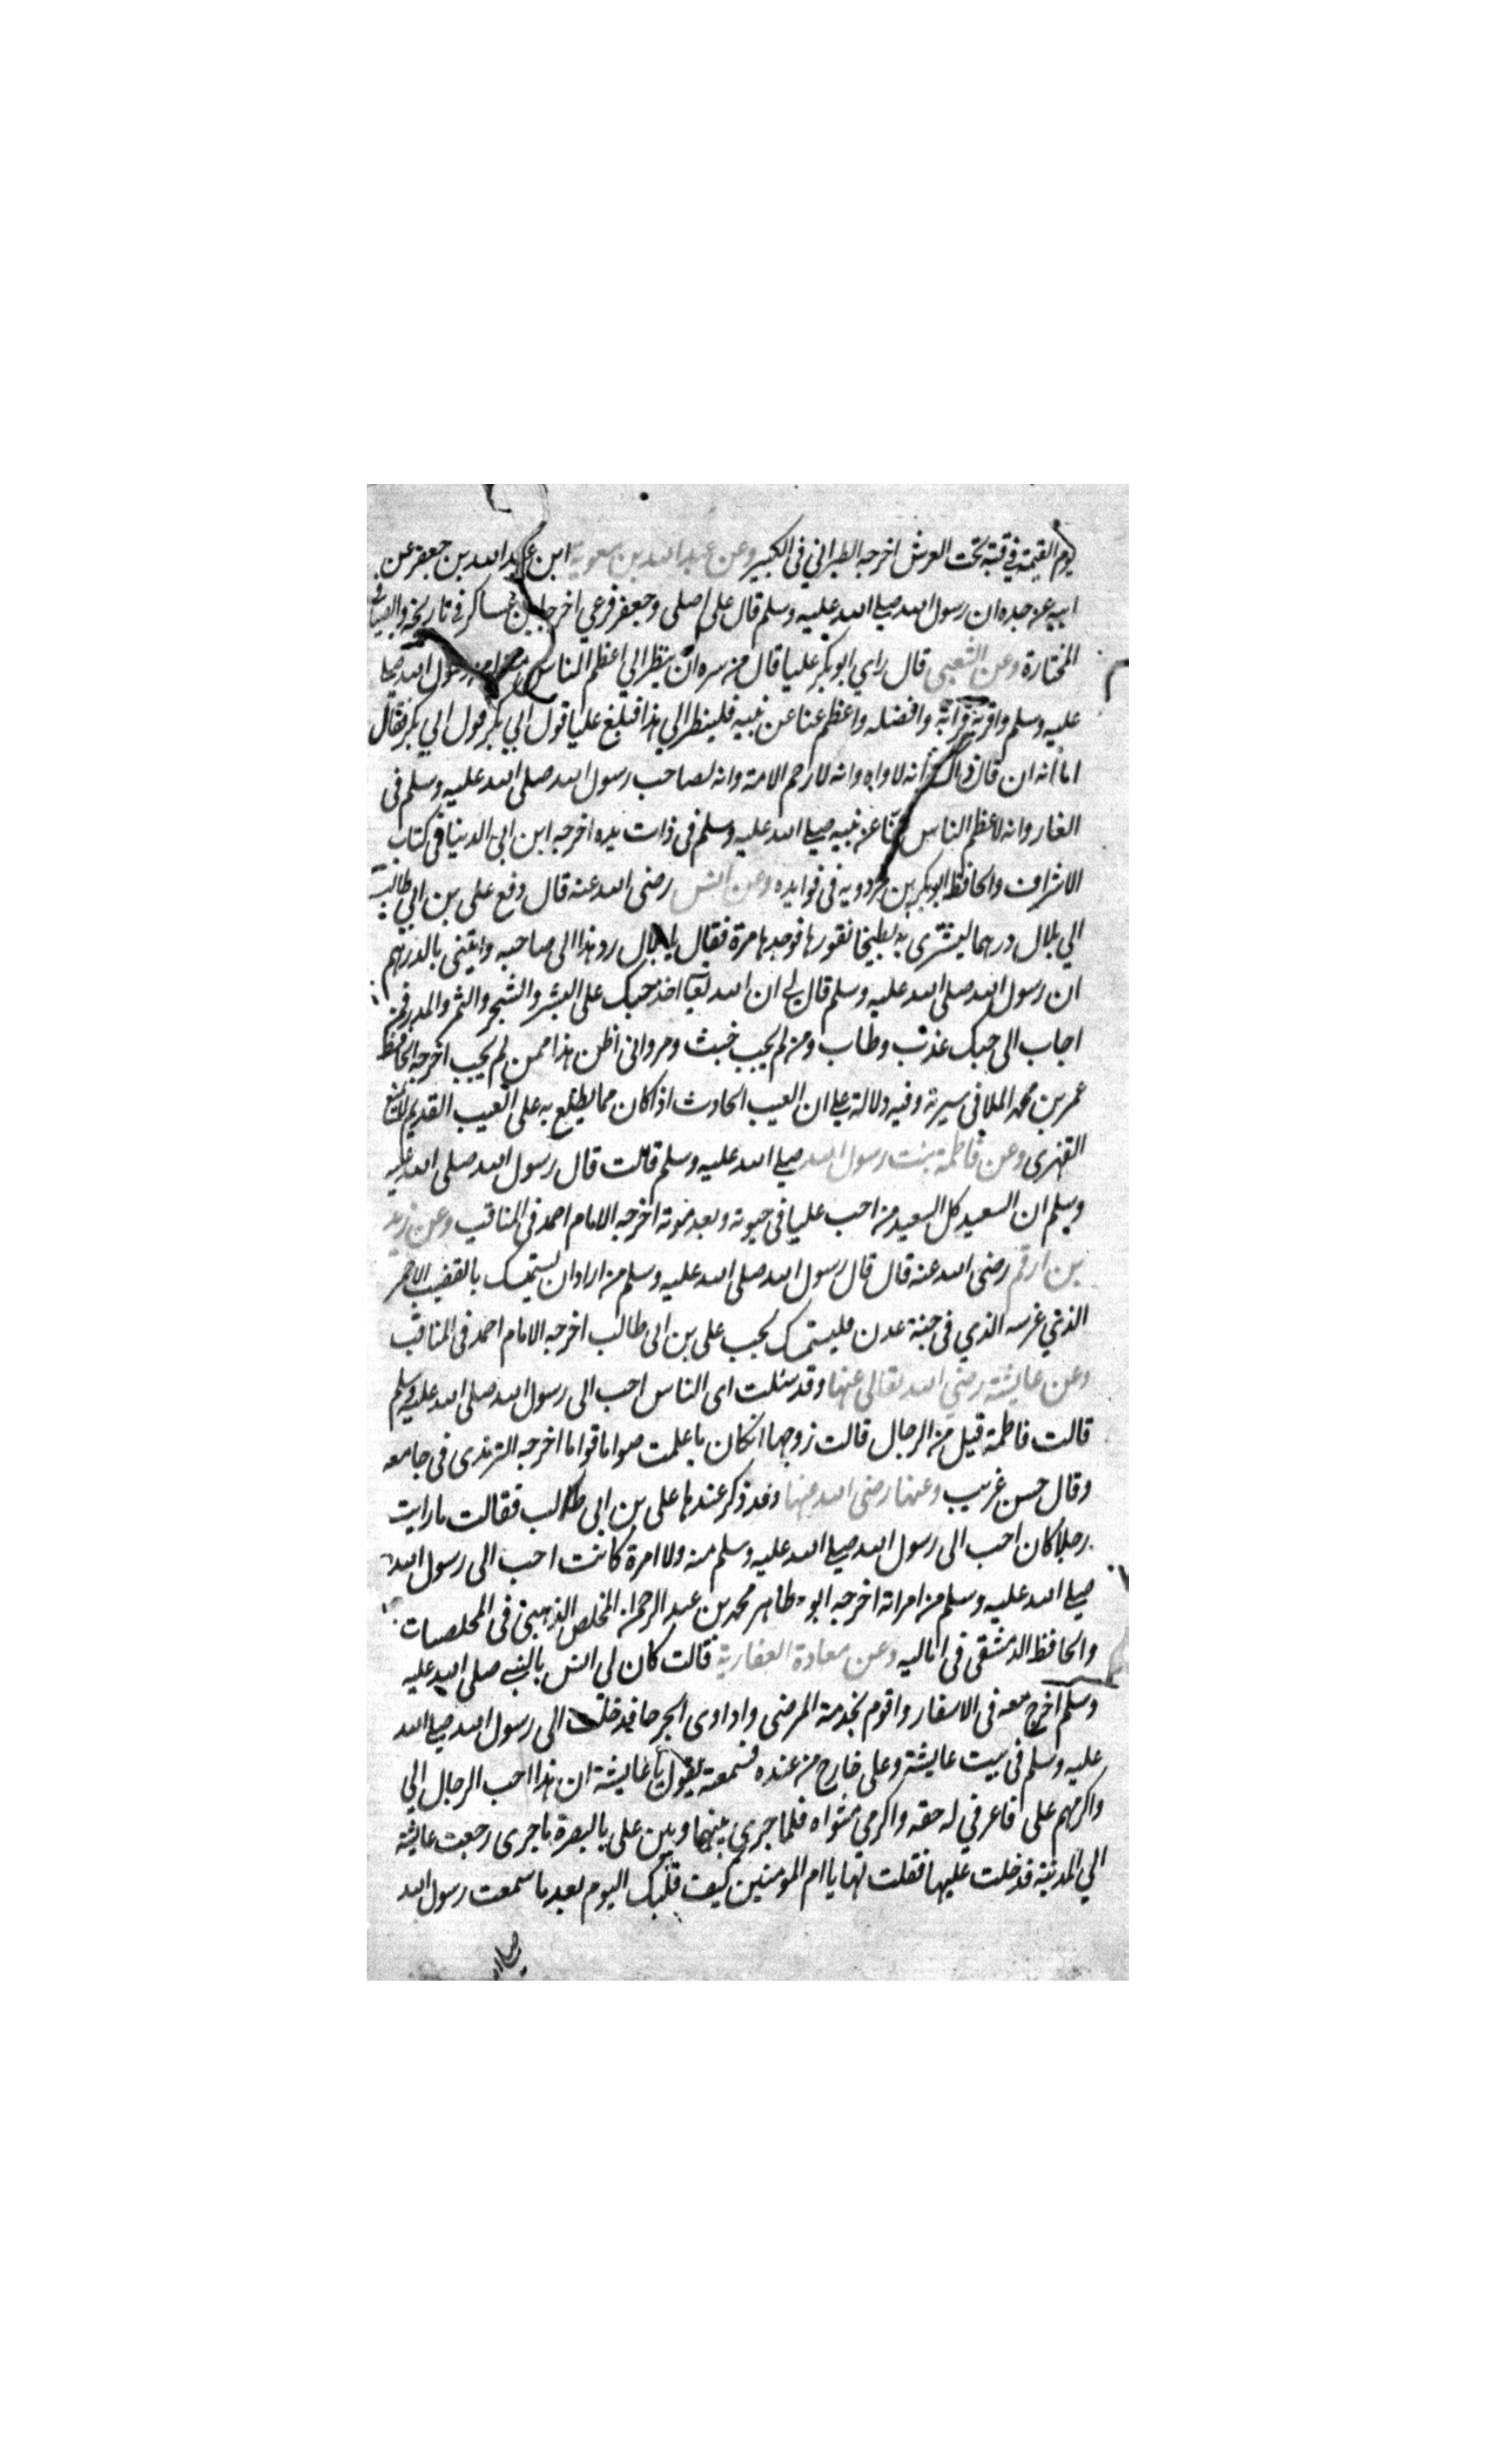 يوم القيمة في قبة تحت العرش اخرجه الطبراني في الكبير وعن عبد الله بن معوية ابن عبد الله بن جعفر عن
ابيه عن جده ان رسول الله صلى الله عليه وسلم قال علي اصلي وجعفر فرعي اخرجه ابن عساكر في تاريخه والضيا في
المختارة وعن الشعبي قال راي ابو بكر عليا قال من سره ان ينظر الي اعظم الناس منزلة من رسول الله صلى
عليه وسلم واقربه قرابة وافضله واعظم عنا عن نبيه فلينظر الي هذا فبلغ عليا قول ابي بكر قول ابي بكر فقال
اما انه ان قال ذاك انه لاواه وانه لارحم الامة وانه لصاحب رسول الله صلى الله عليه وسلم في
الغار وانه لاعظم الناس عنا عن نبيه صلى الله عليه وسلم في ذات يده اخرجه ابن ابي الدنيا في كتاب
الاشراف والحافظ ابو بكر بن مردويه في فوايده وعن انس رضى الله عنه قال دفع علي بن ابي طالب
الي بلال درهما ليشترى به بطيخا نقورها فوجدها مرة فقال يا بلال رد هذا الى صاحبه وايتنى بالدرهم
ان رسول الله صلى الله عليه وسلم قال لي ان الله تعا اخذ حبك على البشر والشجر والثمر والمدر فمن
اجاب الى حبك عذب وطاب ومن لم يجب خبث ومر وانى اظن هذا ممن لم يجب اخرجه الحافظ
عمر بن محمد الملا في سيرته وفيه دلالة على ان العيب الحادث اذا كان مما يطلع به على العيب القديم لا يمنع
القهرى وعن فاطمة بنت رسول الله صلى الله عليه وسلم قالت قال رسول الله صلى الله عليه
وسلم ان السعيد كل السعيد من احب عليا في حيوته وبعد موته اخرجه الامام احمد في المناقب وعن زيد
بن ارقم رضى الله عنه قال قال رسول الله صلى الله عليه وسلم من اراد ان يستمسك بالقضيب الاحمر
الذي غرسه الذي في جنة عدن فليستمسك بحب علي بن ابي طالب اخرجه الامام احمد في المناقب
وعن عايشة رضي الله تعالى عنها وقد سئلت اى الناس احب الى رسول الله صلى الله عليه وسلم
قالت فاطمة قيل من الرجال قالت زوجها ان كان ما علمت صواما قواما اخرجه الترمذى في جامعه
وقال حسن غريب وعنها رضى الله عنها وقد ذكر عندها علي بن ابي طالب فقالت ما رايت
رجلا كان احب الى رسول الله صلى الله عليه وسلم منه ولا امرة كانت احب الى رسول الله
صلى الله عليه وسلم من امراته اخرجه ابو طاهر محمد بن عبد الرحمن المخلص الذهبي في المخلصات
والحافظ الدمشقي في اماليه وعن معاذة الغفارية قالت كان لي انس بالنبي صلى الله عليه
وسلم اخرج معه في الاسفار واقوم بخدمة المرضى واداوى الجرحا فدخلت الى رسول الله صلى الله
عليه وسلم في بيت عايشة وعلى خارج من عنده فسمعته يقول يا عايشة ان هذا احب الرجال الي
واكرمهم علي فاعرفي له حقه واكرمي مثواه فلما جرى بينهما وبين علي بالبصرة ما جرى رجعت عايشة
الي المدينة فدخلت عليها فقلت لها يا ام المومنين كيف قلبك اليوم بعد ما سمعت رسول الله